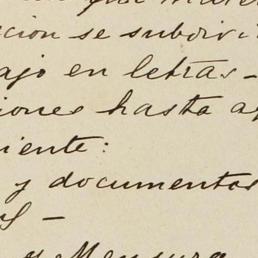 cion se subdivi
ajo en letras-
iones hasta a
iente:
y documentos
y Mensura